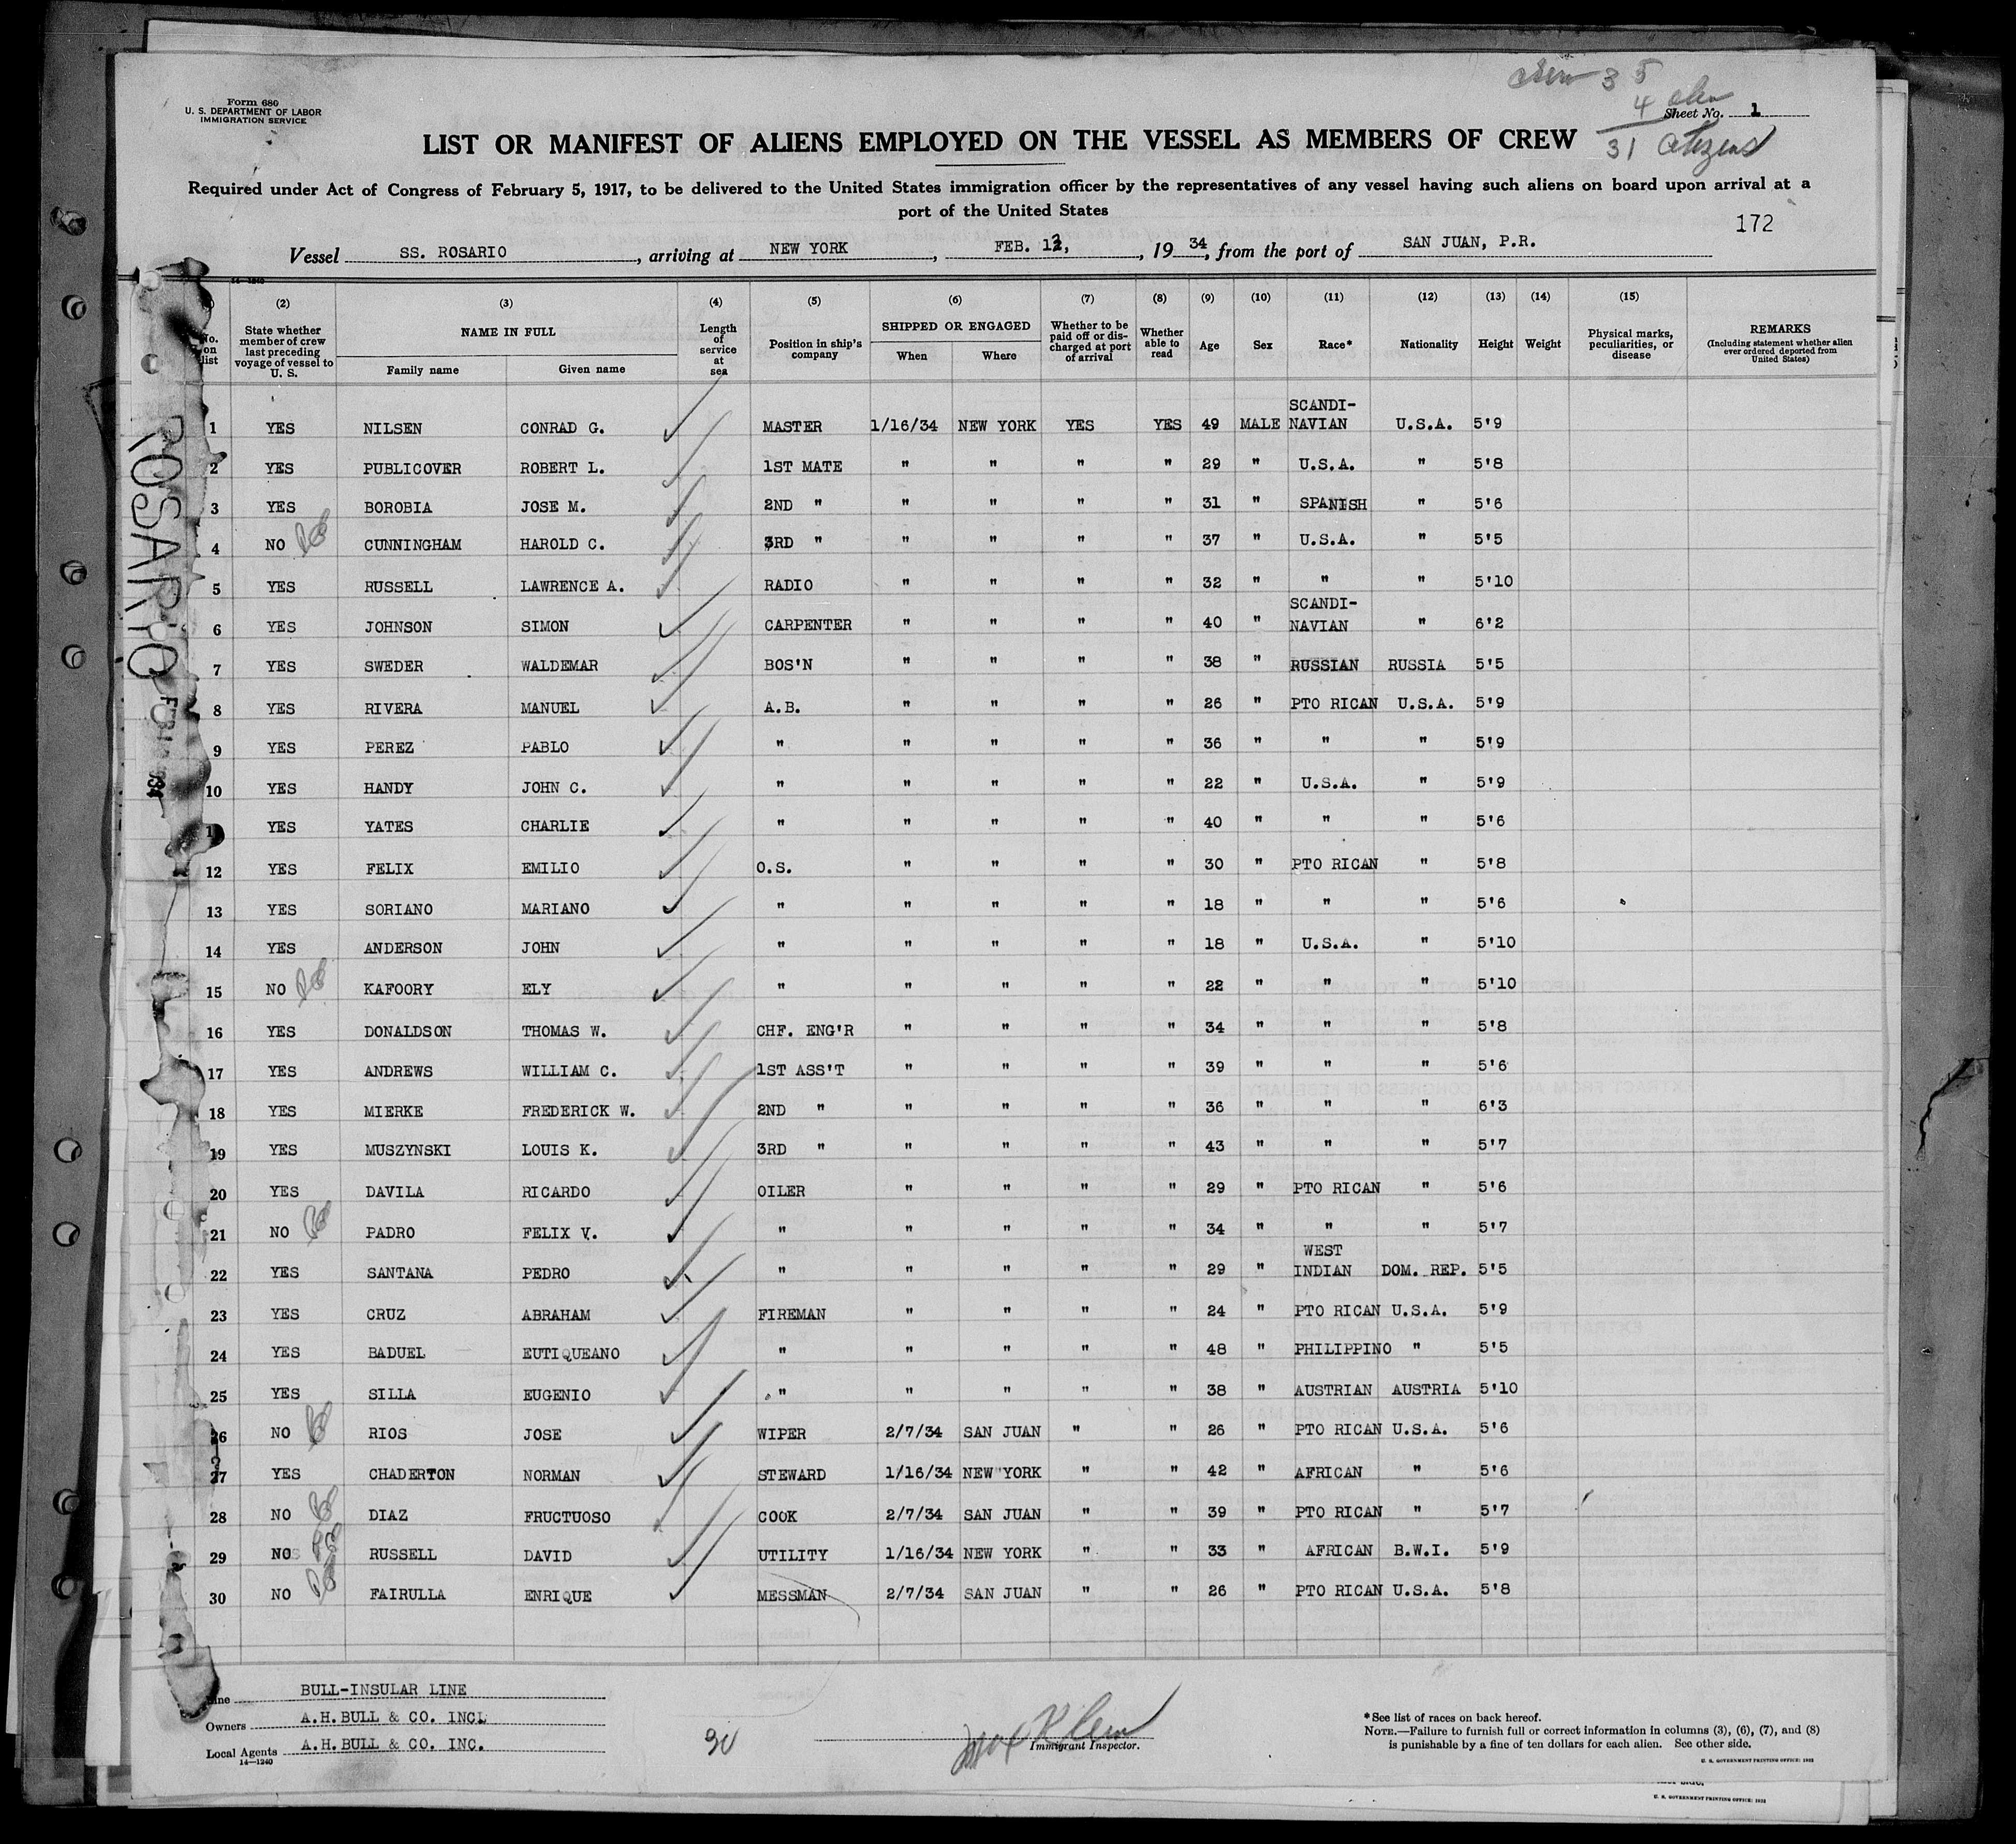 Form 680
U. S. DEPARTMENT OF LABOR
IMMIGRATION SERVICE
crew 35
4 alien
31 citizens
Sheet No. 1
LIST OR MANIFEST OF ALIENS EMPLOYED ON THE VESSEL AS MEMBERS OF CREW
Required under Act of Congress of February 5, 1917, to be delivered to the United States immigration officer by the representatives of any vessel having such aliens on board upon arrival at a
port of the United States
172
Vessel SS. ROSARIO, arriving at NEW YORK, FEB. 12, 1934, from the port of SAN JUAN, P.R.
14—1240
(2) (3) (4) (5) (6) (7) (8) (9) (10) (11) (12) (13) (14) (15)
No. on list
State whether member of crew last preceding voyage of vessel to U. S.
NAME IN FULL
Family name
Given name
Length of service at sea
Position in ship's company
SHIPPED OR ENGAGED
When
Where
Whether to be paid off or discharged at port of arrival
Whether able to read
Age
Sex
Race*
Nationality
Height
Weight
Physical marks, peculiarities, or disease
REMARKS
(Including statement whether alien ever ordered deported from United States)
1 YES NILSEN CONRAD G. MASTER 1/16/34 NEW YORK YES YES 49 MALE SCANDI-NAVIAN U.S.A. 5'9
2 YES PUBLICOVER ROBERT L. 1ST MATE " " " " 29 " U.S.A. " 5'8
3 YES BOROBIA JOSE M. 2ND " " " " " 31 " SPANISH " 5'6
4 NO CUNNINGHAM HAROLD C. 3RD " " " " " 37 " U.S.A. " 5'5
5 YES RUSSELL LAWRENCE A. RADIO " " " " 32 " " " 5'10
6 YES JOHNSON SIMON CARPENTER " " " " 40 " SCANDI-NAVIAN " 6'2
7 YES SWEDER WALDEMAR BOS'N " " " " 38 " RUSSIAN RUSSIA 5'5
8 YES RIVERA MANUEL A.B. " " " " 26 " PTO RICAN U.S.A. 5'9
9 YES PEREZ PABLO " " " " " 36 " " " 5'9
10 YES HANDY JOHN C. " " " " " 22 " U.S.A. " 5'9
11 YES YATES CHARLIE " " " " " 40 " " " 5'6
12 YES FELIX EMILIO O.S. " " " " 30 " PTO RICAN " 5'8
13 YES SORIANO MARIANO " " " " " 18 " " " 5'6
14 YES ANDERSON JOHN " " " " " 18 " U.S.A. " 5'10
15 NO KAFOORY ELY " " " " " 22 " " " 5'10
16 YES DONALDSON THOMAS W. CHF. ENG'R " " " " 34 " " " 5'8
17 YES ANDREWS WILLIAM C. 1ST ASS'T " " " " 39 " " " 5'6
18 YES MIERKE FREDERICK W. 2ND " " " " " 36 " " " 6'3
19 YES MUSZYNSKI LOUIS K. 3RD " " " " " 43 " " " 5'7
20 YES DAVILA RICARDO OILER " " " " 29 " PTO RICAN " 5'6
21 NO PADRO FELIX V. " " " " " 34 " " " 5'7
22 YES SANTANA PEDRO " " " " " 29 " WEST INDIAN DOM. REP. 5'5
23 YES CRUZ ABRAHAM FIREMAN " " " " 24 " PTO RICAN U.S.A. 5'9
24 YES BADUEL EUTIQUEANO " " " " " 48 " PHILIPPINO " 5'5
25 YES SILLA EUGENIO " " " " " 38 " AUSTRIAN AUSTRIA 5'10
26 NO RIOS JOSE WIPER 2/7/34 SAN JUAN " " 26 " PTO RICAN U.S.A. 5'6
27 YES CHADERTON NORMAN STEWARD 1/16/34 NEW YORK " " 42 " AFRICAN " 5'6
28 NO DIAZ FRUCTUOSO COOK 2/7/34 SAN JUAN " " 39 " PTO RICAN " 5'7
29 NO RUSSELL DAVID UTILITY 1/16/34 NEW YORK " " 33 " AFRICAN B.W.I. 5'9
30 NO FAIRULLA ENRIQUE MESSMAN 2/7/34 SAN JUAN " " 26 " PTO RICAN U.S.A. 5'8
ROSARIO
Line BULL-INSULAR LINE
Owners A.H. BULL & CO. INC.
Local Agents A.H. BULL & CO. INC.
14—1240
30
Max Klein
Immigrant Inspector.
*See list of races on back hereof.
NOTE.—Failure to furnish full or correct information in columns (3), (6), (7), and (8)
is punishable by a fine of ten dollars for each alien. See other side.
U. S. GOVERNMENT PRINTING OFFICE: 1932
U. S. GOVERNMENT PRINTING OFFICE: 1932